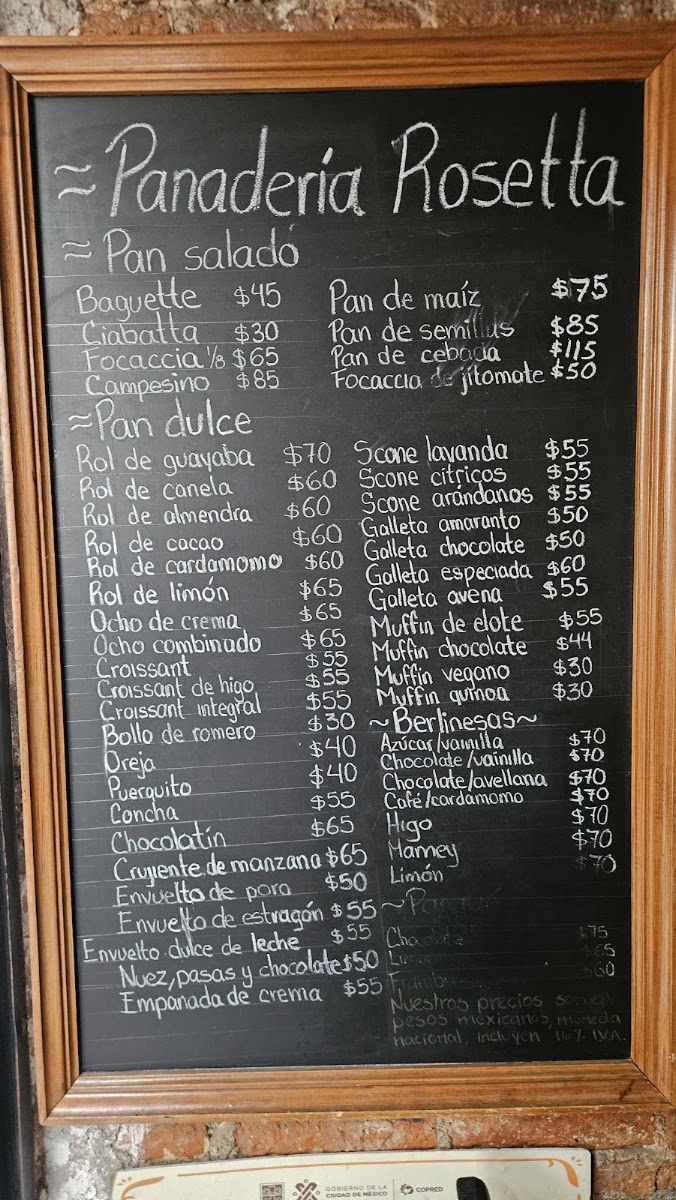 ≈ Panadería Rosetta
≈ Pan salado
Baguette $45
Ciabatta $30
Focaccia 1/8 $65
Campesino $85
Pan de maíz $75
Pan de semillas $85
Pan de cebada $115
Focaccia de jitomate $50
≈ Pan dulce
Rol de guayaba $70
Rol de canela $60
Rol de almendra $60
Rol de cacao $60
Rol de cardamomo $60
Rol de limón $65
Ocho de crema $65
Ocho combinado $65
Croissant $55
Croissant de higo $55
Croissant integral $55
Bollo de romero $30
Oreja $40
Puerquito $40
Concha $55
Chocolatín $65
Crujente de manzana $65
Envuelto de poro $50
Envuelto de estragón $55
Envuelto dulce de leche $55
Nuez, pasas y chocolate $50
Empanada de crema $55
Scone lavanda $55
Scone cítricos $55
Scone arándanos $55
Galleta amaranto $50
Galleta chocolate $50
Galleta especiada $60
Galleta avena $55
Muffin de elote $55
Muffin chocolate $44
Muffin vegano $30
Muffin quinoa $30
~Berlinesas~
Azúcar/vainilla $70
Chocolate/vainilla $70
Chocolate/avellana $70
Café/cardamomo $70
Higo $70
Mamey $70
Limón $70
Chocolate $75
$65
$60
Nuestros precios son en
pesos mexicanos, moneda
nacional, incluyen 16% I.V.A.
GOBIERNO DE LA
CIUDAD DE MÉXICO
COPRED